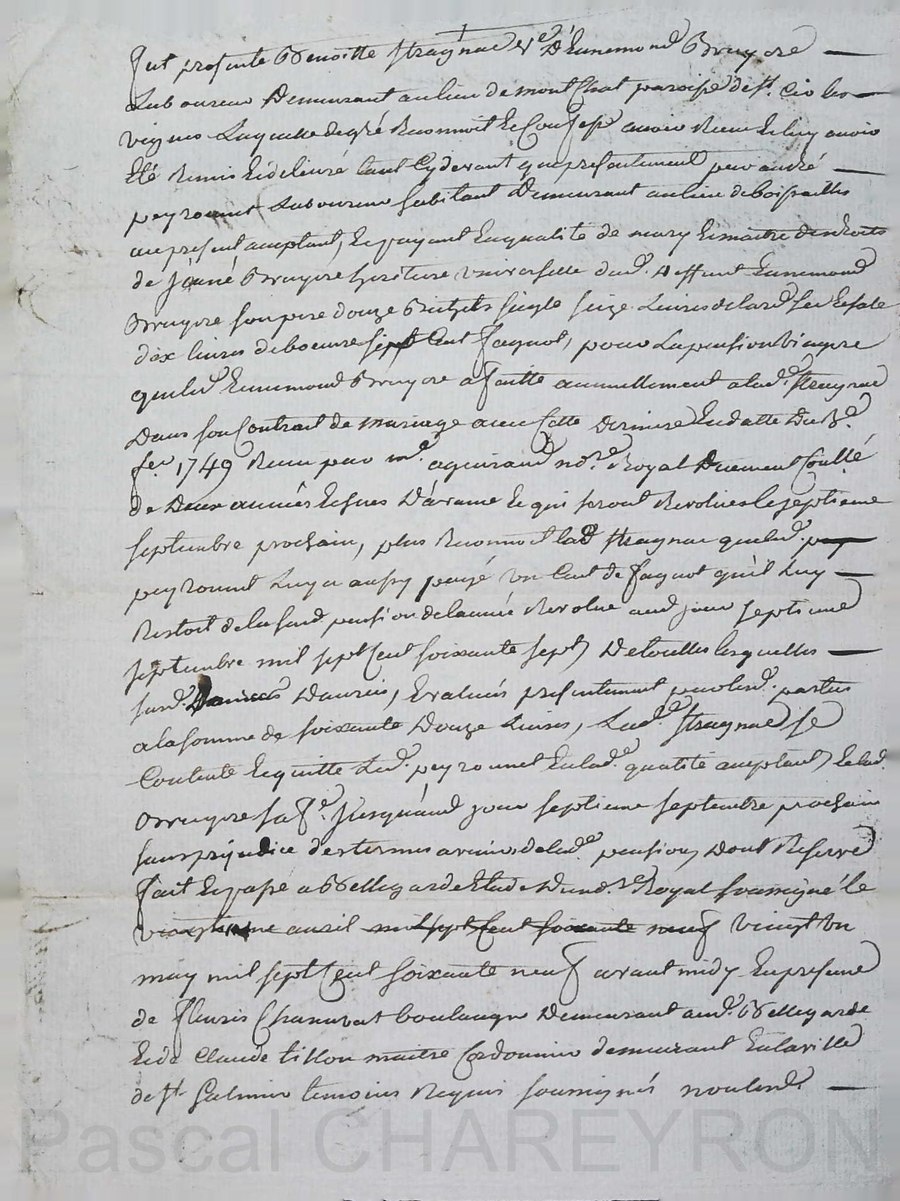 fut presente Benoitte Stragnac v.e d'Ennemond Bruyere —
Laboureur Demeurant au lieu de montChat paroisse de St. Cir les —
vignes Laquelle de gré Reconnoit Et Confesse avoir Receu Et luy avoir
Eté Remis Et deliuré tant Cydevant que presentement par andré —
peyronnet Laboureur habitant Demeurant au lieu de boisrailles
au present acceptant, Et payant En qualité de mary Et maitre des droits
de Bruyere heritiere universelle dud. Deffunt Ennemond
Bruyere son pere douze Bichets seigle seize Livres de lard
dix livres de beurre sept Cent fagots, pour La pension Viagere
que led. Ennemond Bruyere a faitte annuellement a lad.e Stragnac
Dans son Contrat de mariage avec Cette Derniere En datte Du
fer. 1749 Receu par m.e aguiraud no.re Royal Duement Contllé
de Deux années Echues D'avance Et qui seront Revolues le septieme
septembre prochain, plus Reconnoit lad. Stragnac que led.
peyronnet Luy a aussy payé un Cent de fagot qu'il Luy —
Restoit de la susd. pension de l'année Revolue aud. jour septieme
septembre mil sept Cent soixante sept, De touttes lesquelles —
susd. Danrées, Evaluées presentement par lesd. parties
a la somme de soixante Douze Livres, Lad.e Stragnac se
Contente Et quitte Led. peyronnet En lad.e qualité acceptant, Et lad.
Bruyere sa fe. Jusqu'aud. jour septieme septembre prochain
sans prejudice des termes a venir de lad.e pension, Dont Reservé
fait Et passé a Bellegarde Etude Dud. no.re Royal soussigné le
avril mil sept Cent soixante neuf vingt un
may mil sept Cent soixante neuf avant midy En presence
de fleuris boulanger Demeurant aud. Bellegarde
Et de Claude tillon maitre Cordonnier demeurant En la ville
de St. Galmier temoins Requis soussignés non led. —
Pascal CHAREYRON